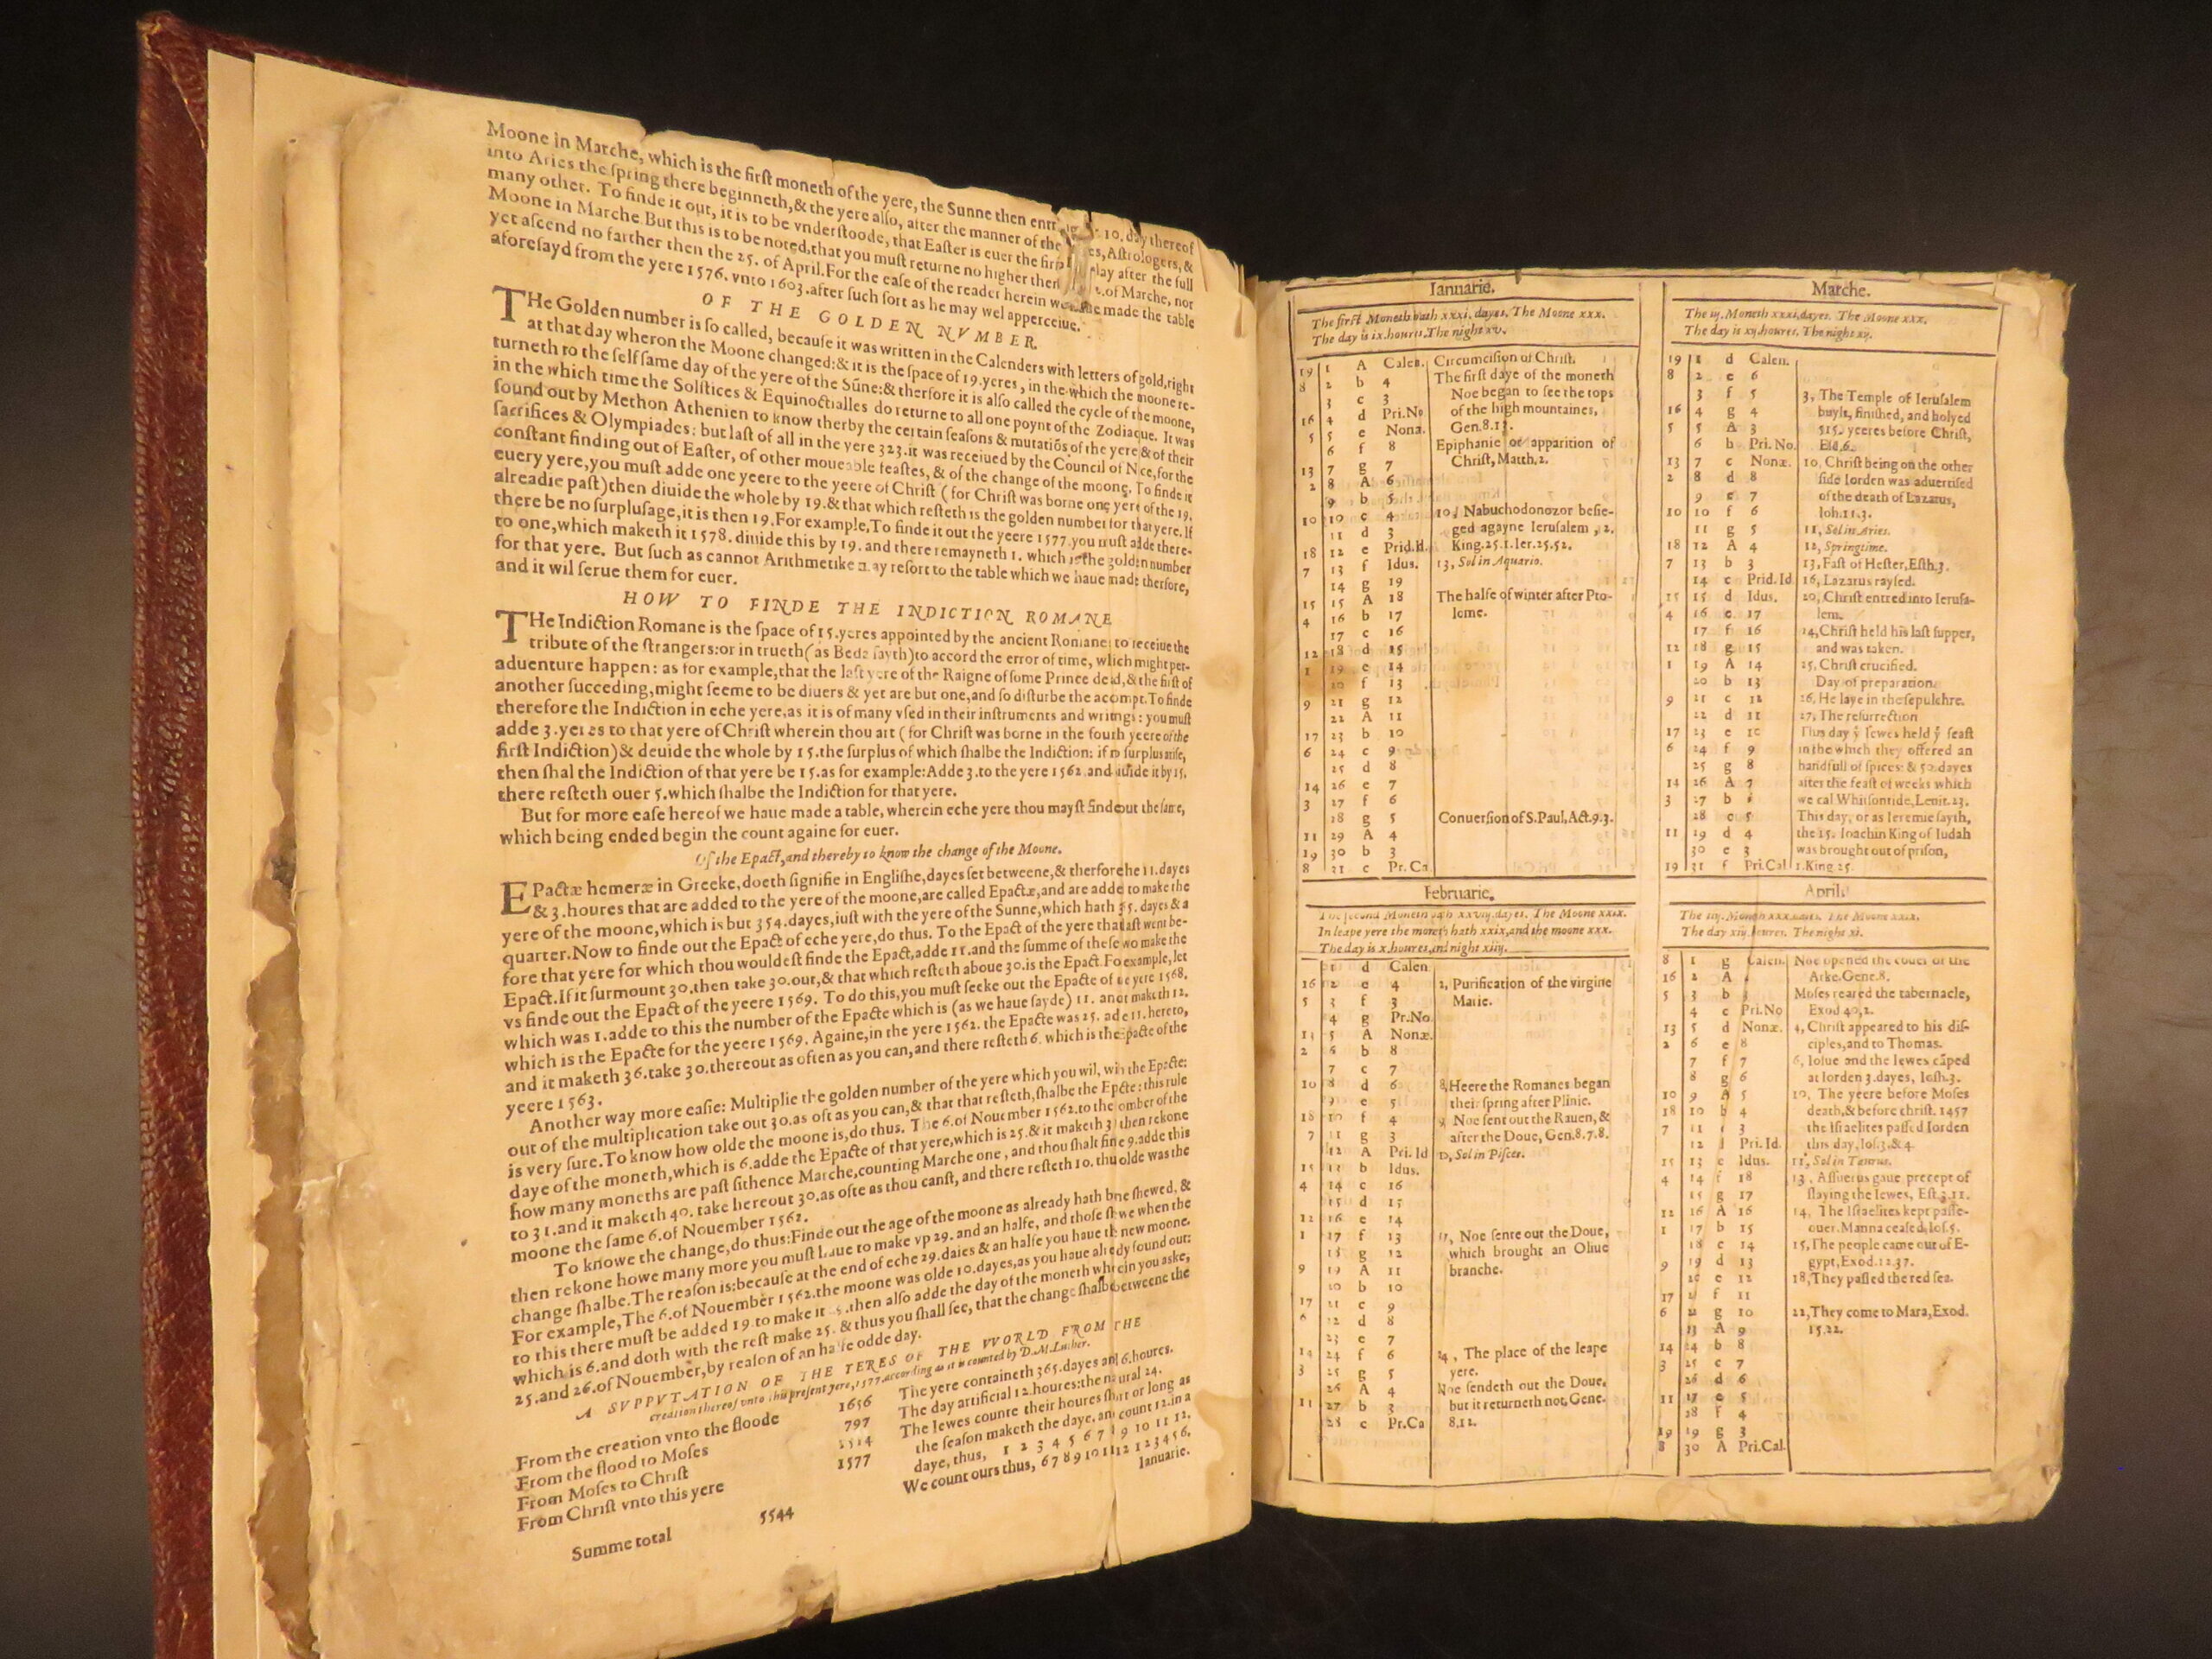 Moone in Marche, which is the first moneth of the yere, the Sunne then entr 10. day thereof
into Aries the spring there beginneth, & the yere also, after the manner of the es, Astrologers, &
many other. To finde it out, it is to be vnderstoode, that Easter is euer the first day after the full
Moone in Marche. But this is to be noted, that you must returne no higher then of Marche, nor
yet ascend no farther then the 25. of April. For the ease of the reader herein we haue made the table
aforesayd from the yere 1576. vnto 1603. after such sort as he may wel apperceiue.
OF THE GOLDEN NVMBER.
THe Golden number is so called, because it was written in the Calenders with letters of gold, right
at that day wheron the Moone changed: & it is the space of 19. yeres, in the which the moone re-
turneth to the self same day of the yere of the Sūne: & therfore it is also called the cycle of the moone,
in the which time the Solstices & Equinoctialles do returne to all one poynt of the Zodiaque. It was
found out by Methon Athenien to know therby the certain seasons & mutatiōs of the yere & of their
sacrifices & Olympiades: but last of all in the yere 323. it was receiued by the Council of Nice, for the
constant finding out of Easter, of other moueable feastes, & of the change of the moone. To finde it
euery yere, you must adde one yeere to the yeere of Christ (for Christ was borne one yere of the 19.
alreadie past) then diuide the whole by 19. & that which resteth is the golden number for that yere. If
there be no surplusage, it is then 19. For example, To finde it out the yeere 1577. you must adde there-
to one, which maketh it 1578. diuide this by 19. and there remayneth 1. which is the golden number
for that yere. But such as cannot Arithmetike may resort to the table which we haue made therfore,
and it wil serue them for euer.
HOW TO FINDE THE INDICTION ROMANE
THe Indiction Romane is the space of 15. yeres appointed by the ancient Romane: to receiue the
tribute of the strangers: or in trueth (as Bede sayth) to accord the error of time, which might per-
aduenture happen: as for example, that the last yere of the Raigne of some Prince dead, & the first of
another succeding, might seeme to be diuers & yet are but one, and so disturbe the acompt. To finde
therefore the Indiction in eche yere, as it is of many vsed in their instruments and writings: you must
adde 3. yeres to that yere of Christ wherein thou art (for Christ was borne in the fourth yeere of the
first Indiction) & deuide the whole by 15. the surplus of which shalbe the Indiction: if no surplus arise,
then shal the Indiction of that yere be 15. as for example: Adde 3. to the yere 1562. and diuide it by 15.
there resteth ouer 5. which shalbe the Indiction for that yere.
But for more ease hereof we haue made a table, wherein eche yere thou mayst finde out the same,
which being ended begin the count againe for euer.
Of the Epact, and thereby to know the change of the Moone.
EPactæ hemeræ in Greeke, doeth signifie in Englishe, dayes set betweene, & therfore he 11. dayes
& 3. houres that are added to the yere of the moone, are called Epactæ, and are adde to make the
yere of the moone, which is but 354. dayes, iust with the yere of the Sunne, which hath 5. dayes & a
quarter. Now to finde out the Epact of eche yere, do thus. To the Epact of the yere that last went be-
fore that yere for which thou wouldest finde the Epact, adde 11. and the summe of these two make the
Epact. If it surmount 30, then take 30. out, & that which resteth aboue 30. is the Epact. Fo example, let
vs finde out the Epact of the yeere 1569. To do this, you must seeke out the Epacte of yere 1568.
which was 1. adde to this the number of the Epacte which is (as we haue sayde) 11. and it maketh 12.
which is the Epacte for the yeere 1569. Againe, in the yere 1562. the Epacte was 25. ade 11. hereto,
and it maketh 36. take 30. thereout as often as you can, and there resteth 6. which is the Epacte of the
yeere 1563.
Another way more easie: Multiplie the golden number of the yere which you wil, with the Epacte:
out of the multiplication take out 30. as oft as you can, & that that resteth, shalbe the Epacte: this rule
is very sure. To know how olde the moone is, do thus. The 6. of Nouember 1562. to the omber of the
daye of the moneth, which is 6. adde the Epacte of that yere, which is 25. & it maketh 31 then rekone
how many moneths are past sithence Marche, counting Marche one, and thou shalt fine 9. adde this
to 31. and it maketh 40. take hereout 30. as ofte as thou canst, and there resteth 10. thu olde was the
moone the same 6. of Nouember 1562.
To knowe the change, do thus: Finde out the age of the moone as already hath bne shewed, &
then rekone howe many more you must haue to make vp 29. and an halfe, and those shwe when the
change shalbe. The reason is: because at the end of eche 29. daies & an halfe you haue th new moone.
For example, The 6. of Nouember 1562. the moone was olde 10. dayes, as you haue already found out:
to this there must be added 19. to make it . then also adde the day of the moneth wherin you aske,
which is 6. and doth with the rest make 25. & thus you shall see, that the change shalbe betweene the
25. and 26. of Nouember, by reason of an halfe odde day.
A SVPPVTATION OF THE YERES OF THE VVORLD FROM THE
creation thereof vnto this present yere, 1577. according as it is counted by D. M. Luther.
From the creation vnto the floode 1656
From the flood to Moses 797
From Moses to Christ 1514
From Christ vnto this yere 1577
Summe total 5544
The yere containeth 365. dayes and 6. houres.
The day artificial 12. houres: the natural 24.
The Iewes counte their houres short or long as
the season maketh the daye, and count 12. in a
daye, thus, 1 2 3 4 5 6 7 8 9 10 11 12.
We count ours thus, 6 7 8 9 10 11 12 1 2 3 4 5 6.
Ianuarie.
Ianuarie.
The first Moneth hath xxxi. dayes. The Moone xxx.
The day is ix. houres. The night xv.
19 1 A Calen. Circumcision of Christ.
8 2 b 4 The first daye of the moneth
3 c 3 Noe began to see the tops
16 4 d Pri.No of the high mountaines,
5 5 e Nonæ. Gen.8.13.
6 f 8 Epiphanie or apparition of
13 7 g 7 Christ, Matth.2.
2 8 A 6
9 b 5
10 10 c 4 10, Nabuchodonozor besie-
11 d 3 ged agayne Ierusalem, 2.
18 12 e Prid.Id. King.25.1. Ier.25.52.
7 13 f Idus. 13, Sol in Aquario.
14 g 19
15 15 A 18 The halfe of winter after Pto-
4 16 b 17 leme.
17 c 16
12 18 d 15
1 19 e 14
20 f 13
9 21 g 12
22 A 11
17 23 b 10
6 24 c 9
25 d 8
14 26 e 7
3 27 f 6
28 g 5 Conuersion of S. Paul, Act.9.3.
11 29 A 4
19 30 b 3
8 31 c Pr.Ca
Februarie.
The second Moneth hath xxviij. dayes. The Moone xxix.
In leape yere the moneth hath xxix, and the moone xxx.
The day is x. houres, and night xiiij.
1 d Calen.
16 2 e 4 2, Purification of the virgine
5 3 f 3 Marie.
4 g Pr.No.
13 5 A Nonæ.
2 6 b 8
7 c 7
10 8 d 6 8, Heere the Romanes began
9 e 5 their spring after Plinie.
18 10 f 4 9, Noe sent out the Rauen, &
7 11 g 3 after the Doue, Gen.8.7.8.
12 A Pri.Id Sol in Pisces.
15 13 b Idus.
4 14 c 16
15 d 15
12 16 e 14
1 17 f 13 17, Noe sente out the Doue,
18 g 12 which brought an Oliue
9 19 A 11 branche.
20 b 10
17 21 c 9
6 22 d 8
23 e 7
14 24 f 6 24, The place of the leape
3 25 g 5 yere.
26 A 4 Noe sendeth out the Doue,
11 27 b 3 but it returneth not, Gene.
28 c Pr.Ca 8.12.
Marche.
The iij. Moneth xxxi. dayes. The Moone xxx.
The day is xij. houres. The night xij.
19 1 d Calen.
8 2 e 6
3 f 5 3, The Temple of Ierusalem
16 4 g 4 buylt, finished, and holyed
5 5 A 3 515. yeeres before Christ,
6 b Pri.No. Esd.6.
13 7 c Nonæ. 10, Christ being on the other
2 8 d 8 side Iorden was aduertised
9 e 7 of the death of Lazarus,
10 10 f 6 Ioh.11.3.
11 g 5 11, Sol in Aries.
18 12 A 4 12, Springtime.
7 13 b 3 13, Fast of Hester, Esth.3.
14 c Prid.Id 16, Lazarus raysed.
15 15 d Idus. 20, Christ entred into Ierusa-
4 16 e 17 lem.
17 f 16 24, Christ held his last supper,
12 18 g 15 and was taken.
1 19 A 14 25, Christ crucified.
20 b 13 Day of preparation.
9 21 c 12 26, He laye in the sepulchre.
22 d 11 27, The resurrection
17 23 e 10 This day yͤ Iewes held yͤ feast
6 24 f 9 in the which they offered an
25 g 8 handfull of spices: & 50. dayes
14 26 A 7 after the feast of weeks which
3 27 b we cal Whitsontide, Leuit.23.
28 c 5 This day, or as Ieremie sayth,
11 29 d 4 the 15. Ioachin King of Iudah
30 e 3 was brought out of prison,
19 31 f Pri.Cal 1.King 25.
April.
The iiij. Moneth xxx. daies. The Moone xxix.
The day xiij. houres. The night xi.
8 1 g Calen. Noe opened the couer of the
16 2 A Arke. Gene.8.
5 3 b 3 Moses reared the tabernacle,
4 c Pri.No Exod 40,2.
13 5 d Nonæ. 4, Christ appeared to his dis-
2 6 e 8 ciples, and to Thomas.
7 f 7 6, Iosue and the Iewes cāped
8 g 6 at Iorden 3. dayes, Iosh.3.
10 9 A 5 10, The yeere before Moses
18 10 b 4 death, & before christ. 1457
7 11 3 the Israelites passed Iorden
12 Pri.Id. this day, Ios.3. & 4.
15 13 e Idus. 11, Sol in Taurus.
4 14 f 18 13, Assuerus gaue precept of
15 g 17 slaying the Iewes, Est.3.11.
12 16 A 16 14, The Israelites kept passe-
1 17 b 15 ouer. Manna ceased, Ios.5.
18 c 14 15, The people came out of E-
9 19 d 13 gypt, Exod.12.37.
20 e 12 18, They passed the red sea.
17 21 f 11
6 22 g 10 22, They come to Mara, Exod.
23 A 9 15.22.
14 24 b 8
3 25 c 7
26 d 6
11 27 e 5
28 f 4
19 29 g 3
8 30 A Pri.Cal.